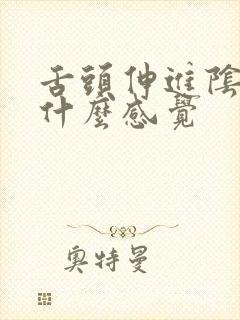 舌頭伸進陰
什麼感覺
奧特曼